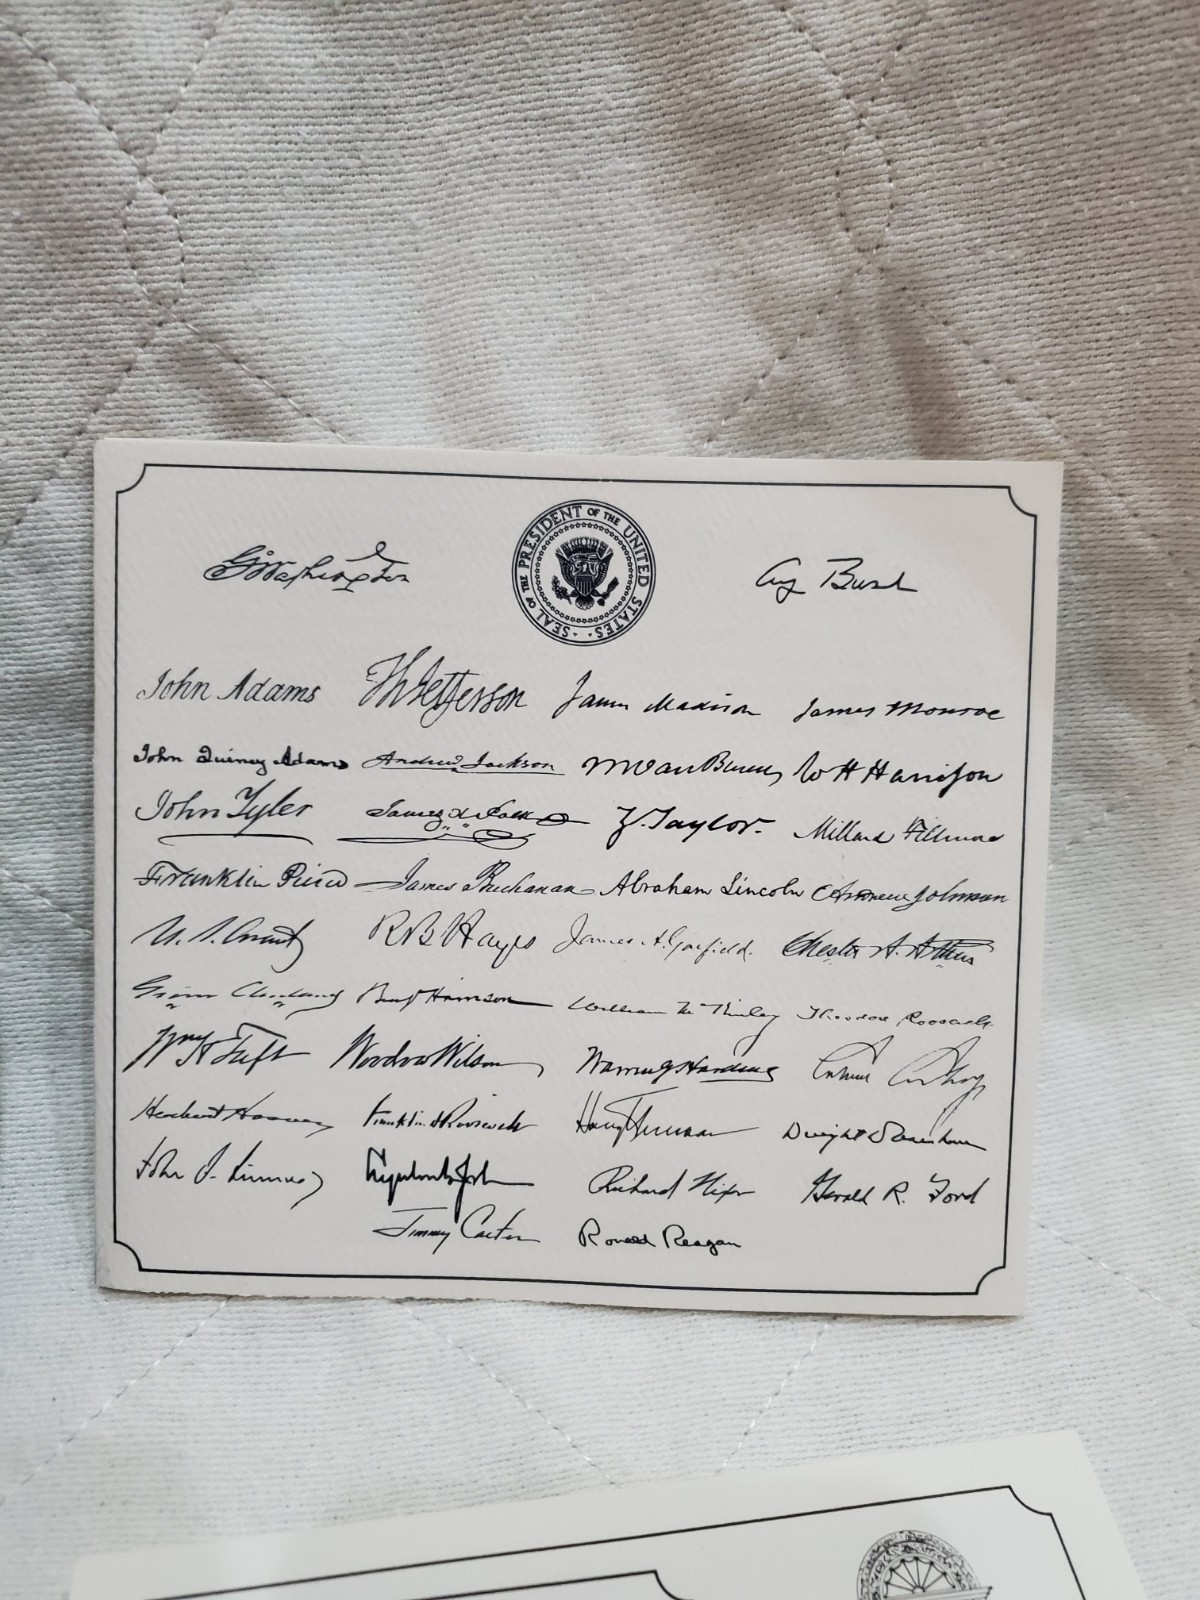 G Washington SEAL OF THE PRESIDENT OF THE UNITED STATES Bush
John Adams Th Jefferson James Madison James Monroe
John Quincy Adams Andrew Jackson M Van Buren W H Harrison
John Tyler James K Polk Z. Taylor. Millard Fillmore
Franklin Pierce James Buchanan Abraham Lincoln Andrew Johnson
U. S. Grant R B Hayes James A. Garfield. Chester A. Arthur
Grover Cleveland Benj Harrison William McKinley Theodore Roosevelt
Wm H Taft Woodrow Wilson Warren G Harding Calvin Coolidge
Herbert Hoover Franklin D Roosevelt Harry Truman Dwight D Eisenhower
John F. Kennedy Lyndon B. Johnson Richard Nixon Gerald R. Ford
Jimmy Carter Ronald Reagan